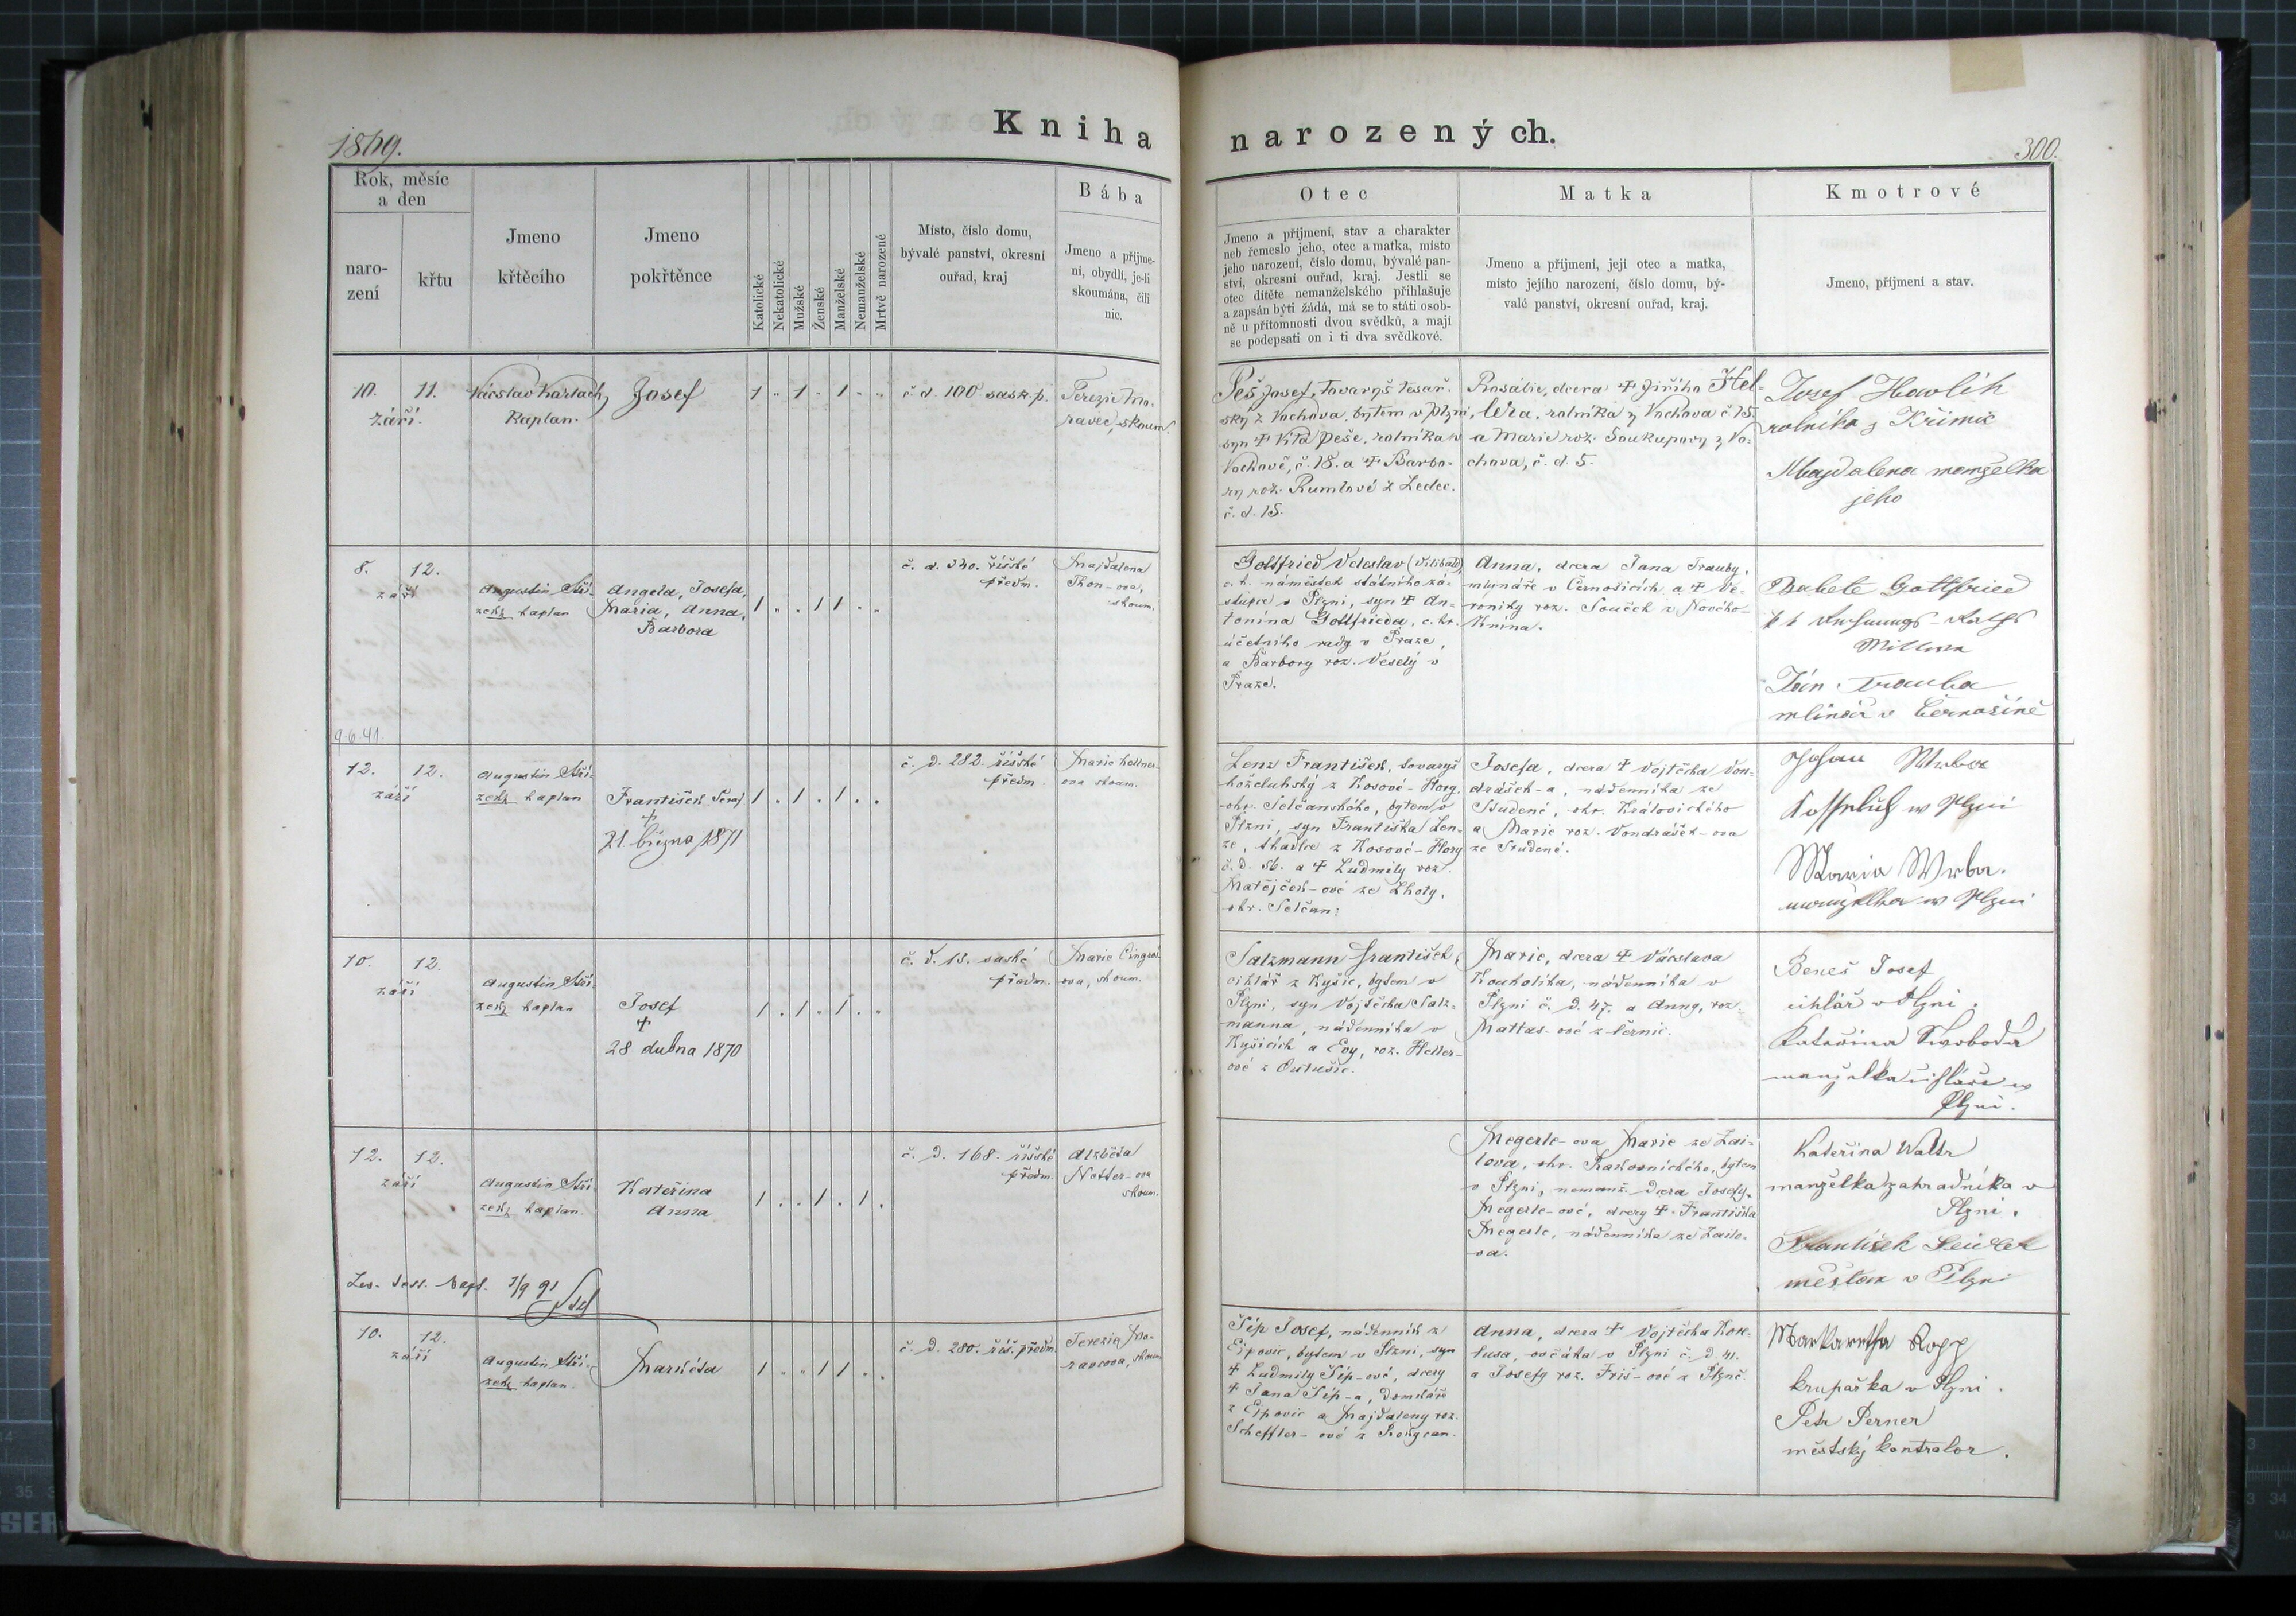 1869.
Kniha
narozených.
300.
Rok, měsíc
a den
naro-
zení
křtu
Jmeno
křtěcího
Jmeno
pokřtěnce
Katolické
Nekatolické
Mužské
Ženské
Manželské
Nemanželské
Mrtvě narozené
Místo, číslo domu,
bývalé panství, okresní
ouřad, kraj
Bába
Jmeno a přijme-
ní, obydlí, je-li
skoumána, čili
nic.
Otec
Jmeno a příjmení, stav a charakter
neb řemeslo jeho, otec a matka, místo
jeho narození, číslo domu, bývalé pan-
ství, okresní ouřad, kraj. Jestli se
otec dítěte nemanželského přihlašuje
a zapsán býti žádá, má se to státi osob-
ně u přítomnosti dvou svědků, a mají
se podepsati on i ti dva svědkové.
Matka
Jmeno a příjmení, její otec a matka,
místo jejího narození, číslo domu, bý-
valé panství, okresní ouřad, kraj.
Kmotrové
Jmeno, příjmení a stav.
10. 11.
září.
Václav Karlach,
Kaplan.
Josef
1 . 1 . 1 . .
č. d. 100 sask. p.
Terezie Mo-
ravec, skoum.
Peš Josef, tovaryš tesař-
ský z Vochova, bytem v Plzni,
syn † Víta Peše, rolníka v
Vochově, č. 18. a † Barbo-
ry rož. Rumlové z Ledec.
č. d. 15.
Rosalie, dcera † Jiřího
rolníka z Vochova č. 15.
a Marie rož. Soukupovy z Vo-
chova, č. d. 5.
Josef Hawlik
rolníka z Křimic
Magdalena manželka
jeho
8. 12.
září
Augustin Stří-
zek, kaplan
Angela, Josefa,
Maria, Anna,
Barbora
1 . . 1 1 . .
č. d. 340. říšské
předm.
Majdalena
Thon-ova,
skoum.
Gottfried Veleslav (Vilibald),
c. k. náměstek státního zá-
stupce v Plzni, syn † An-
tonína Gottfrieda, c. kr.
účetního rady v Praze,
a Barbory roz. Veselý v
Praze.
Anna, dcera Jana Trauby,
mlynáře v Černošicích a † Ve-
roniky roz. Souček z Nového-
Knína.
Babete Gottfried
Jan Trauba
mlinář v Černošině
9.6.41.
12. 12.
září
Augustin Stří-
zek, kaplan
František Seraf
†
21 března 1871
1 . 1 . 1 . .
č. d. 282. říšské
předm.
Marie Kellner-
ova skoum.
Lenz František, tovaryš
koželuhský z Kosové-Hory,
okr. Selčanského, bytem v
Plzni, syn Františka Len-
ze, tkadlce z Kosové-Hory
č. d. 56. a † Ludmily roz.
Matějček-ové ze Lhoty,
okr. Selčan:
Josefa, dcera † Vojtěcha Von-
drášek-a, nádenníka ze
Studené, okr. Královického
a Marie roz. Vondrášek-ova
ze Studené.
Johan Wrba
w Plzni
Maria Wrba.
manzelka w Plzni
10. 12.
září
Augustin Stří-
zek, kaplan
Josef
†
28 dubna 1870
1 . 1 . 1 . .
č. d. 15. saské
předm.
Marie Cingroš-
ova, skoum.
Salzmann František,
cihlář z Kyšic, bytem v
Plzni, syn Vojtěcha Salz-
manna, nádenníka v
Kyšicích a Evy, roz. Heller-
ové z
Marie, dcera † Václava
Koukolíka, nádenníka v
Plzni č. d. 47. a Anny, roz.
Mattas-ové z Černic.
Beneš Josef
cihlář v Plzni.
Kateřina Swoboda
manželka cihláře w
Plzni.
12. 12.
září
Augustin Stří-
zek, kaplan.
Kateřina
Anna
1 . . 1 . 1 .
č. d. 168. říšské
předm.
Alzběta
Netter-ova
skoum.
Megerle-ova Marie ze Zai-
lova, okr. Rakovnického, bytem
v Plzni, nemanž. dcera Josefy
Megerle-ové, dcery † Františka
Megerle, nádenníka ze Zailo-
va.
Kateřina Waltr
manželka zahradníka v
Plzni.
František
měšťan v Plzni
7/9 91
10. 12.
září
Augustin Stří-
zek, kaplan.
Markéta
1 . . 1 1 . .
č. d. 280. říš. předm.
Terezie Mo-
ravcova, skoum
Šíp Josef, nádenník z
Ejpovic, bytem v Plzni, syn
† Ludmily Šíp-ové, dcery
† Jana Šíp-a, domkáře
z Ejpovic a Majdaleny roz.
Scheffler-ové z Rokycan.
Anna, dcera † Vojtěcha Kore-
lusa, ovčáka v Plzni č. d. 41.
a Josefy roz. Friš-ové z Plzně.
Markaretha Ropp
krupařka v Plzni.
Petr Perner
městský kontrolor.